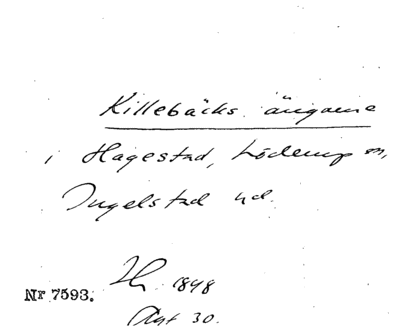 Killebäcks ängarne
i Hagestad, Löderup sn,
Ingelstad hd.
1848
Nr 7593.
Akt 30.